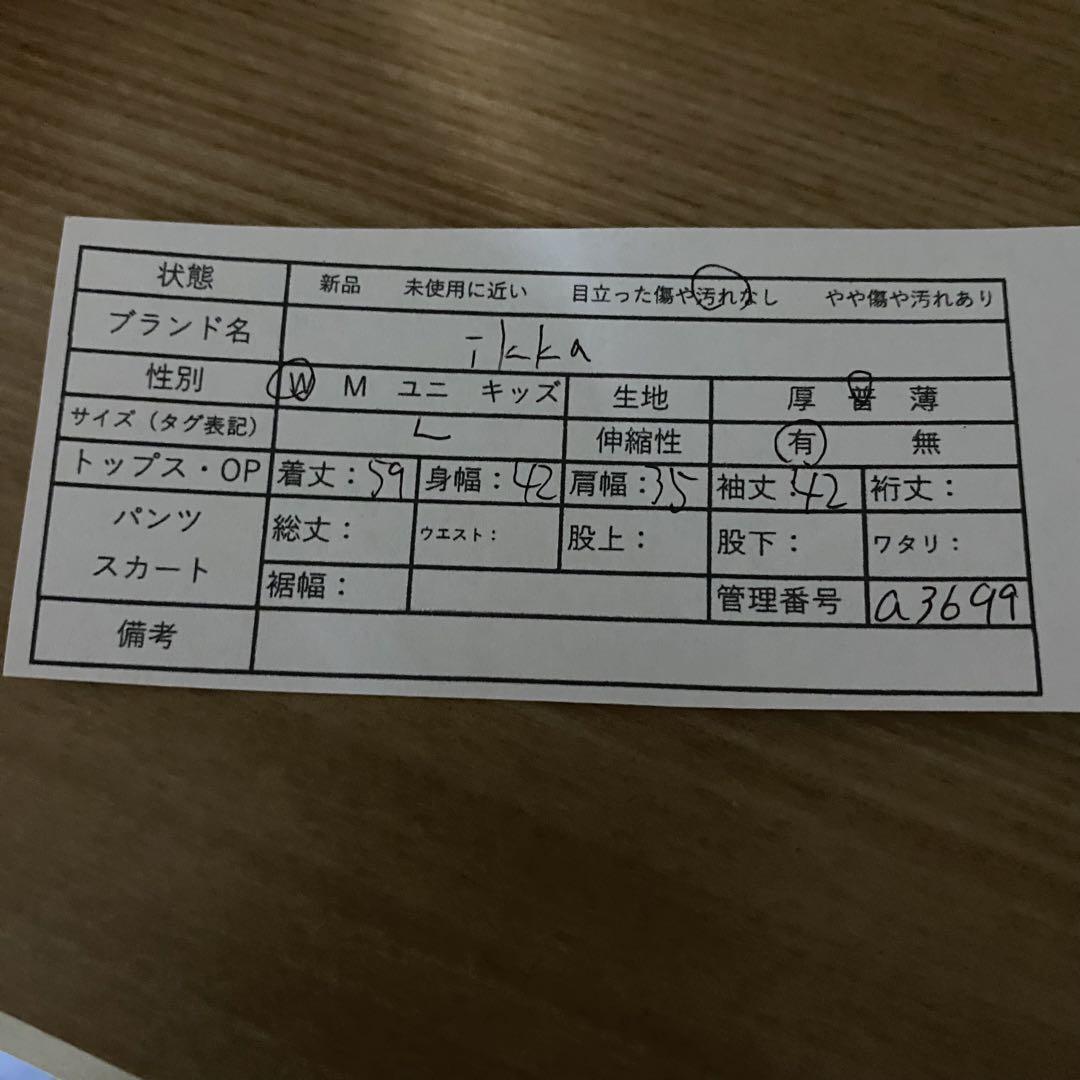 状態 新品 未使用に近い 目立った傷や汚れなし やや傷や汚れあり
ブランド名 ikka
性別 W M ユニ キッズ 生地 厚 普 薄
サイズ（タグ表記） L 伸縮性 有 無
トップス・OP 着丈：59 身幅：42 肩幅：35 袖丈：42 裄丈：
パンツ
スカート
総丈： ウエスト： 股上： 股下： ワタリ：
裾幅： 管理番号 a3699
備考